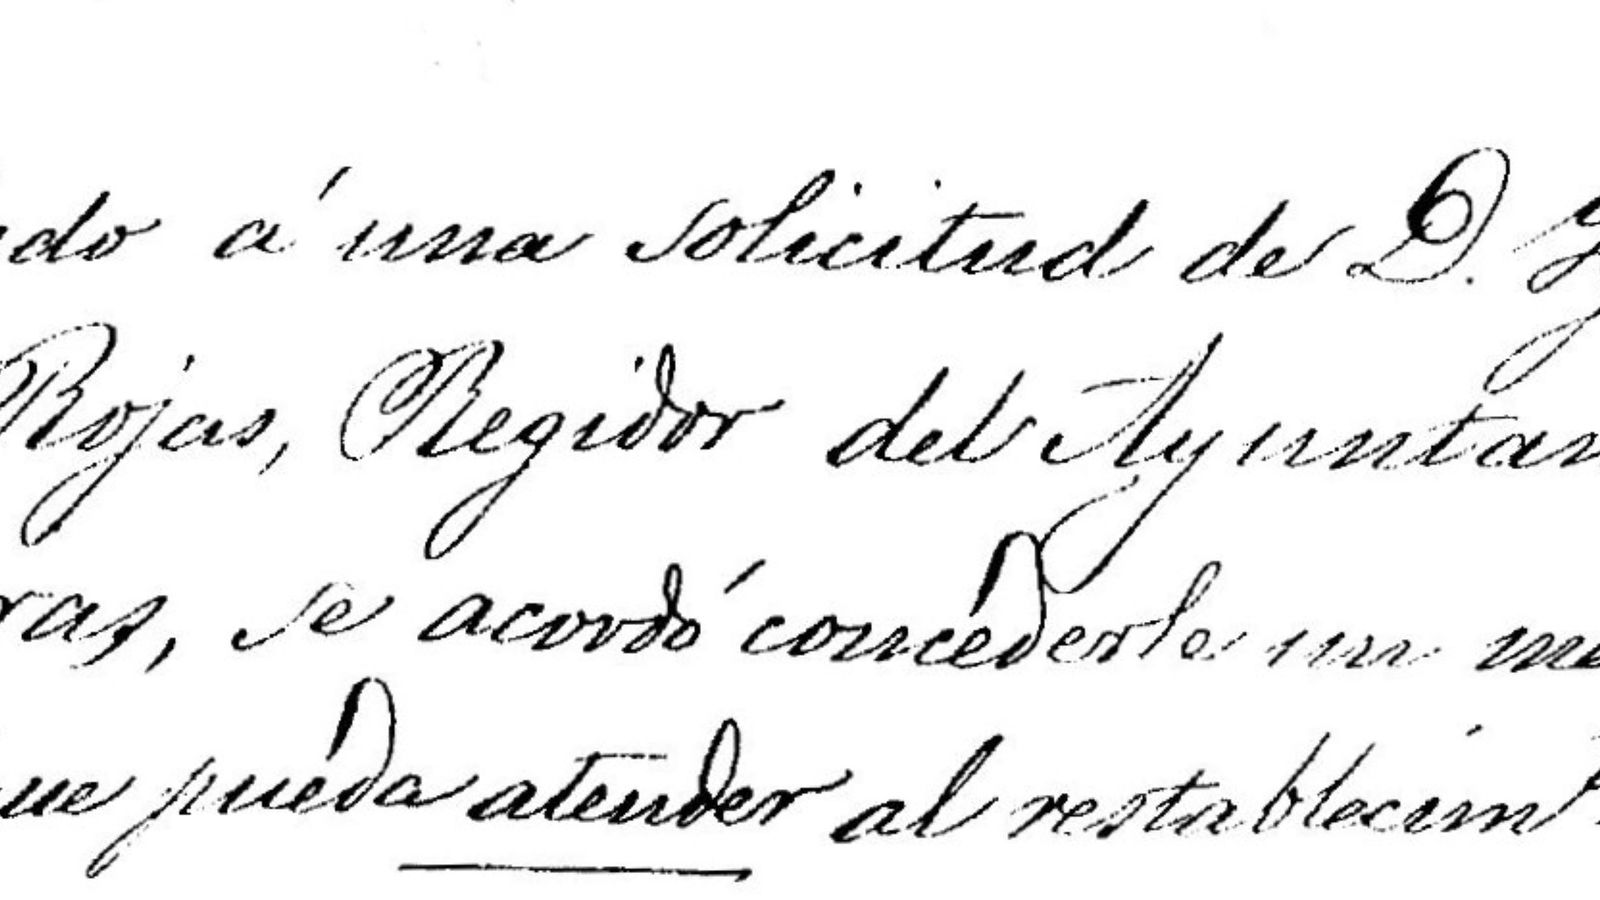 ndo á una solicitud de D.
Rojas, Regidor del Ayuntam
ras, se acordó concederle un me
que pueda atender al restablecim